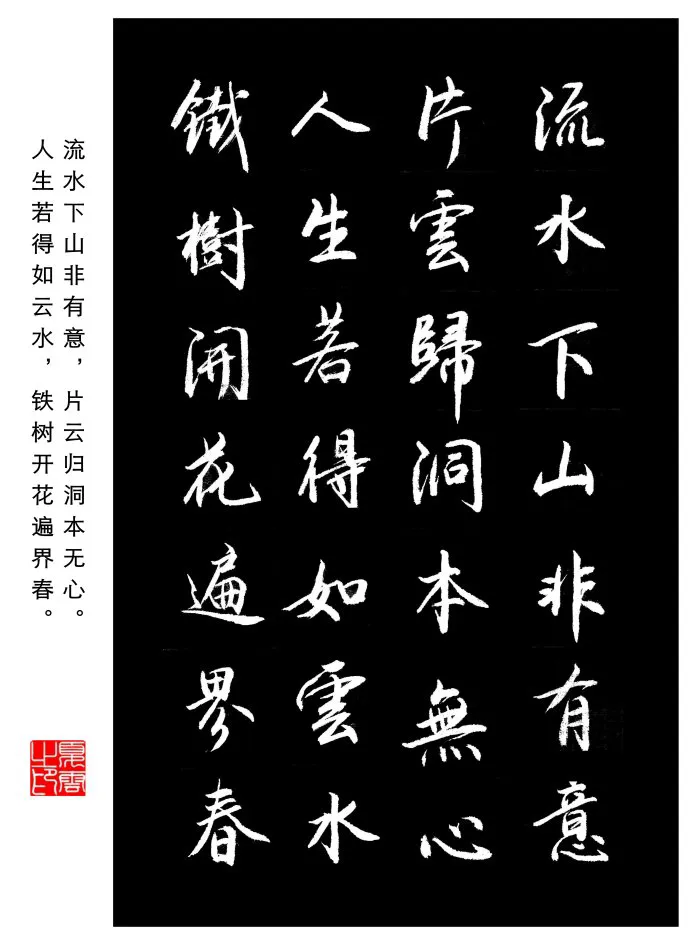 流水下山非有意
片雲歸洞本無心
人生若得如雲水
鐵樹開花遍界春
流水下山非有意，片云归洞本无心。
人生若得如云水，铁树开花遍界春。